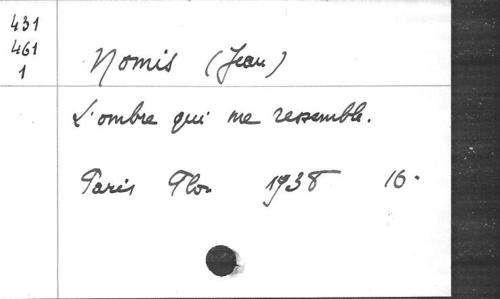 431
461
1
Nomis (Jean)
L'ombre qui me ressemble.
Paris Plon 1938 16.